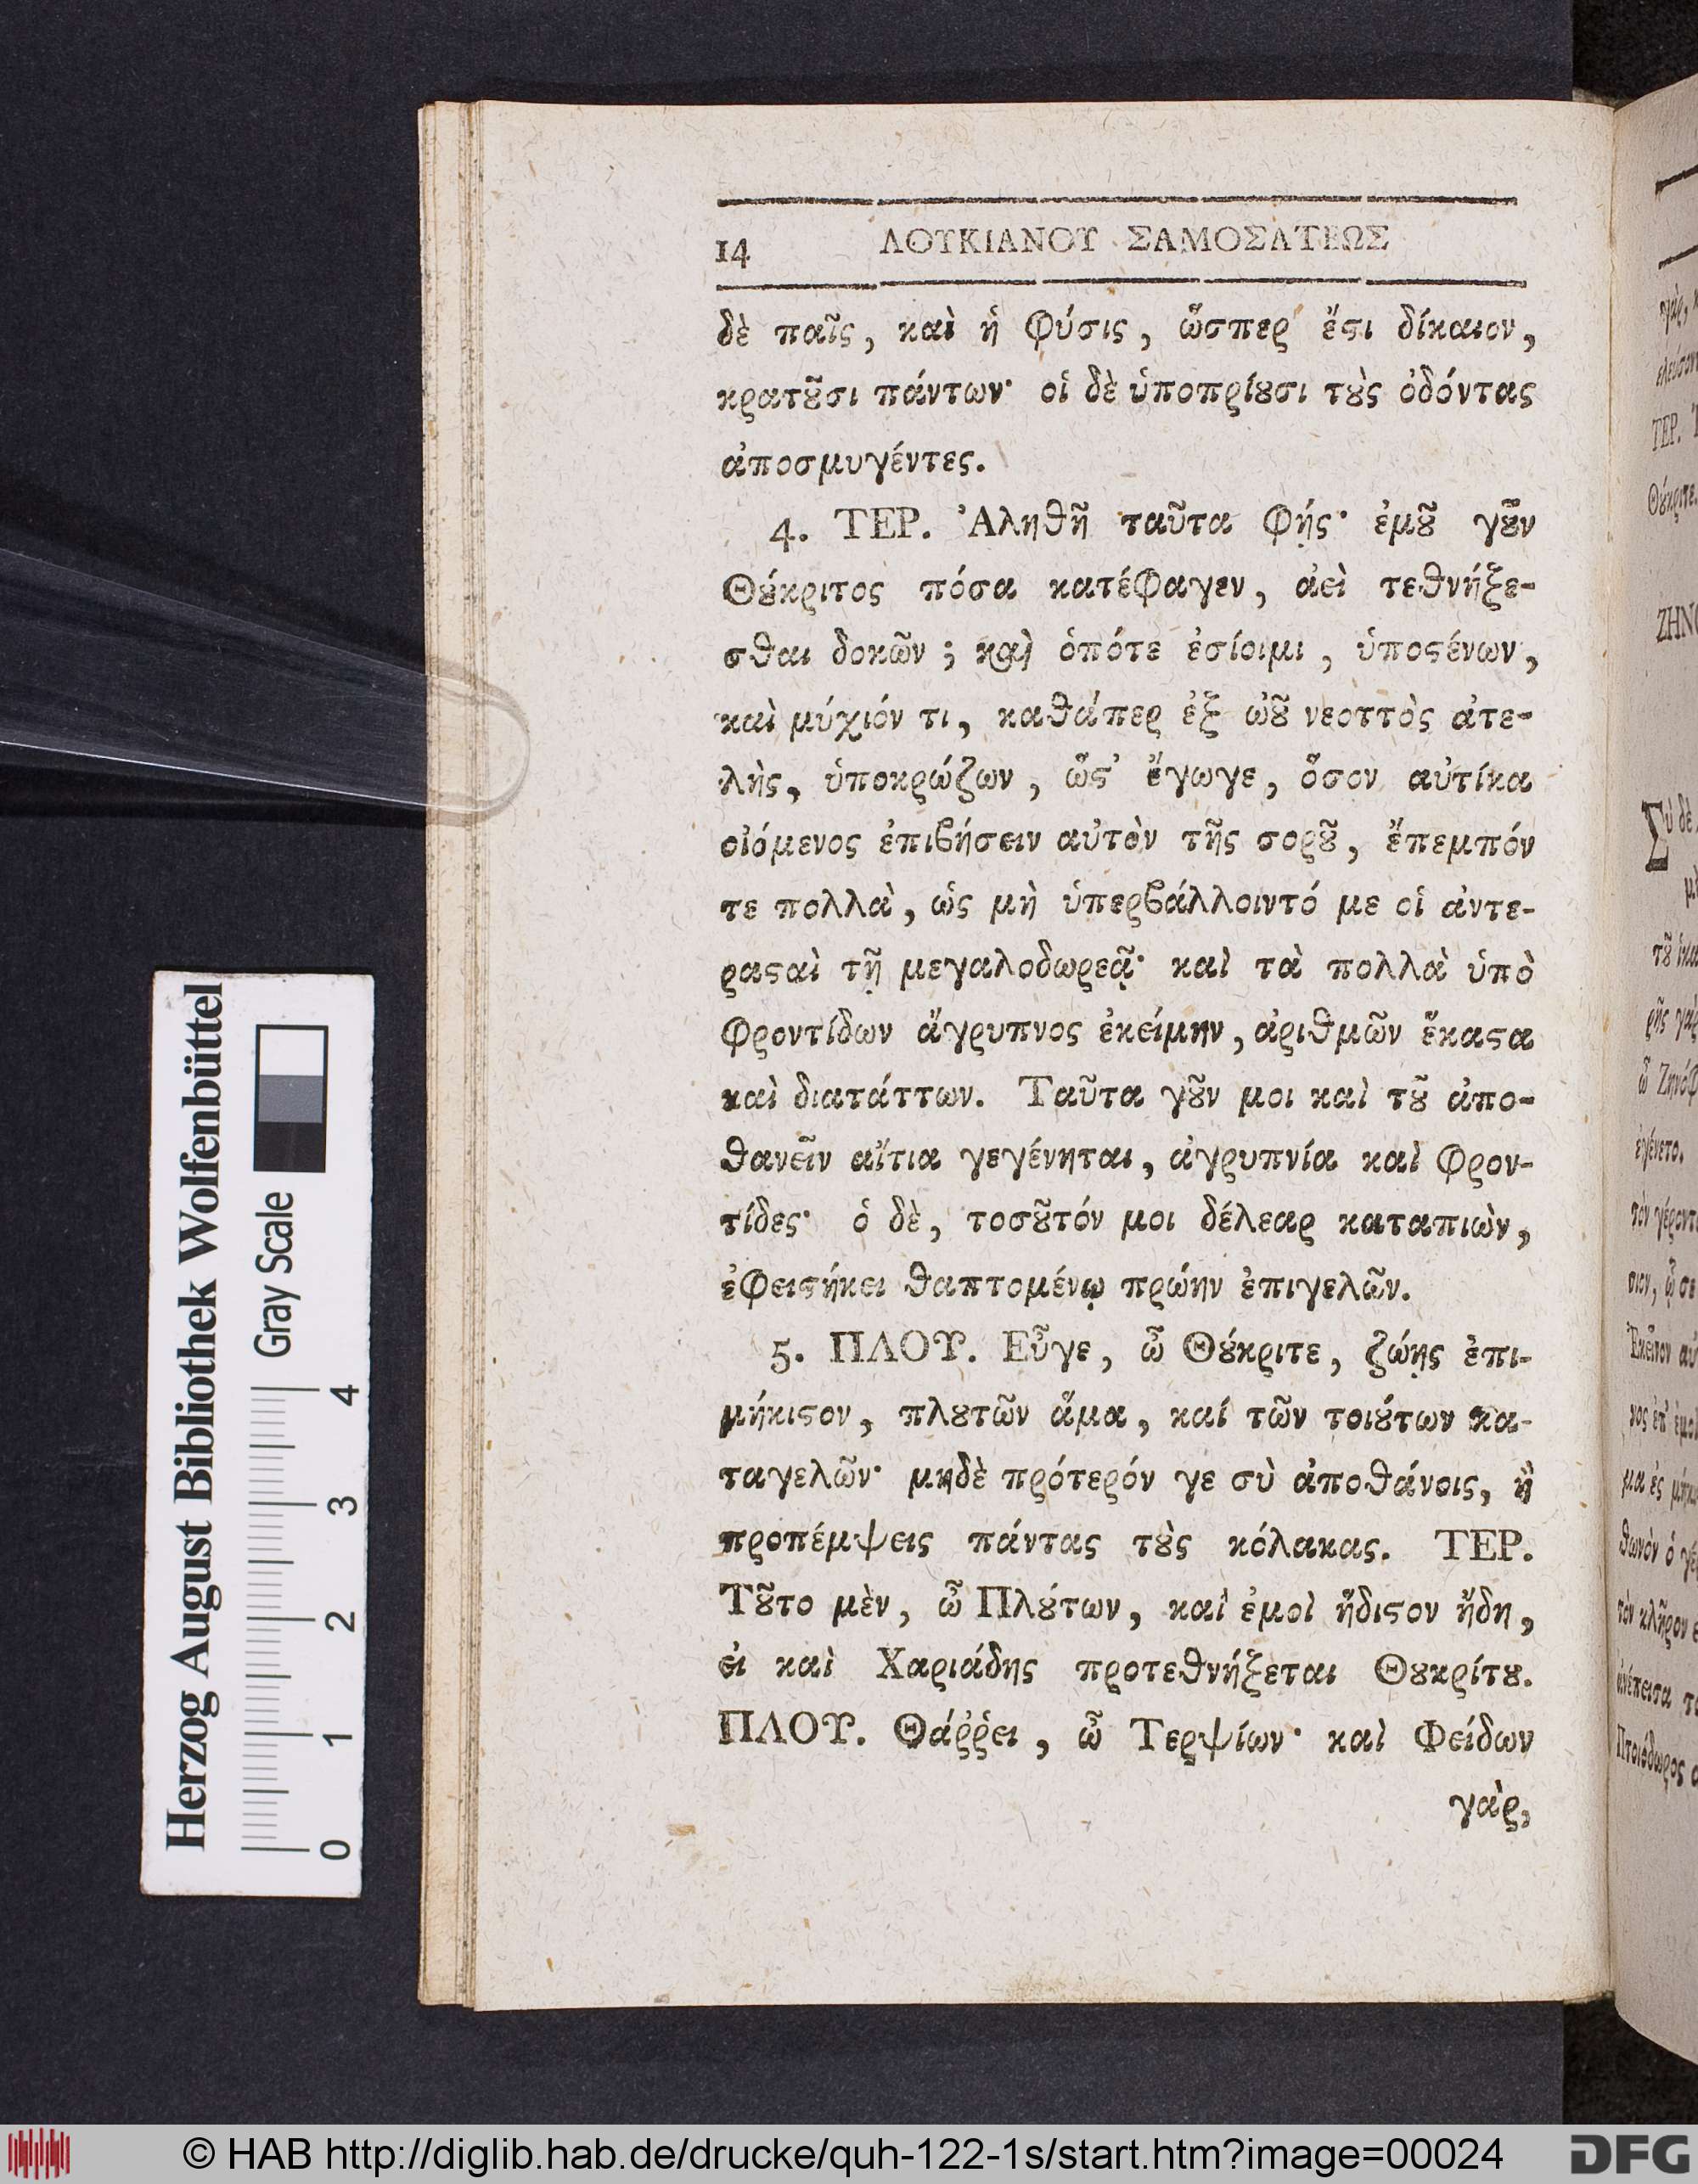 14 ΛΟΥΚΙΑΝΟΥ ΣΑΜΟΣΑΤΕΩΣ
δὲ παῖς, καὶ ἡ φύσις, ὥσπερ ἔϛι δίκαιον,
κρατȣ͂σι πάντων· οἱ δὲ ὑποπρίȣσι τȣ̀ς ὀδόντας
ἀποσμυγέντες.
4. ΤΕΡ. Ἀληθῆ ταῦτα φῄς· ἐμȣ͂ γȣ͂ν
Θȣ́κριτος πόσα κατέφαγεν, ἀεὶ τεθνήξε-
σθαι δοκῶν; καὶ ὁπότε ἐσίοιμι, ὑποϛένων,
καὶ μύχιόν τι, καθάπερ ἐξ ὠȣ͂ νεοττὸς ἀτε-
λὴς, ὑποκρώζων, ὥϛ' ἔγωγε, ὅσον αὐτίκα
οἰόμενος ἐπιβήσειν αὐτὸν τῆς σορȣ͂, ἔπεμπόν
τε πολλὰ, ὡς μὴ ὑπερβάλλοιντό με οἱ ἀντε-
ραϛαὶ τῇ μεγαλοδωρεᾷ· καὶ τὰ πολλὰ ὑπὸ
φροντίδων ἄγρυπνος ἐκείμην, ἀριθμῶν ἕκαϛα
καὶ διατάττων. Ταῦτα γȣ͂ν μοι καὶ τȣ͂ ἀπο-
θανεῖν αἴτια γεγένηται, ἀγρυπνία καὶ φρον-
τίδες· ὁ δὲ, τοσȣ͂τόν μοι δέλεαρ καταπιὼν,
ἐφειϛήκει θαπτομένῳ πρώην ἐπιγελῶν.
5. ΠΛΟΥ. Εὖγε, ὦ Θȣ́κριτε, ζώῃς ἐπι-
μήκιϛον, πλȣτῶν ἅμα, καί τῶν τοιȣ́των κα-
ταγελῶν· μηδὲ πρότερόν γε σὺ ἀποθάνοις, ἢ
προπέμψεις πάντας τȣ̀ς κόλακας. ΤΕΡ.
Τȣ͂το μὲν, ὦ Πλȣ́των, καὶ ἐμοὶ ἥδιϛον ἤδη,
εἰ καὶ Χαριάδης προτεθνήξεται Θȣκρίτȣ.
ΠΛΟΥ. Θάῤῥει, ὦ Τερψίων· καὶ Φείδων
γὰρ,
Herzog August Bibliothek Wolfenbüttel
Gray Scale
0 1 2 3 4
© HAB http://diglib.hab.de/drucke/quh-122-1s/start.htm?image=00024
DFG